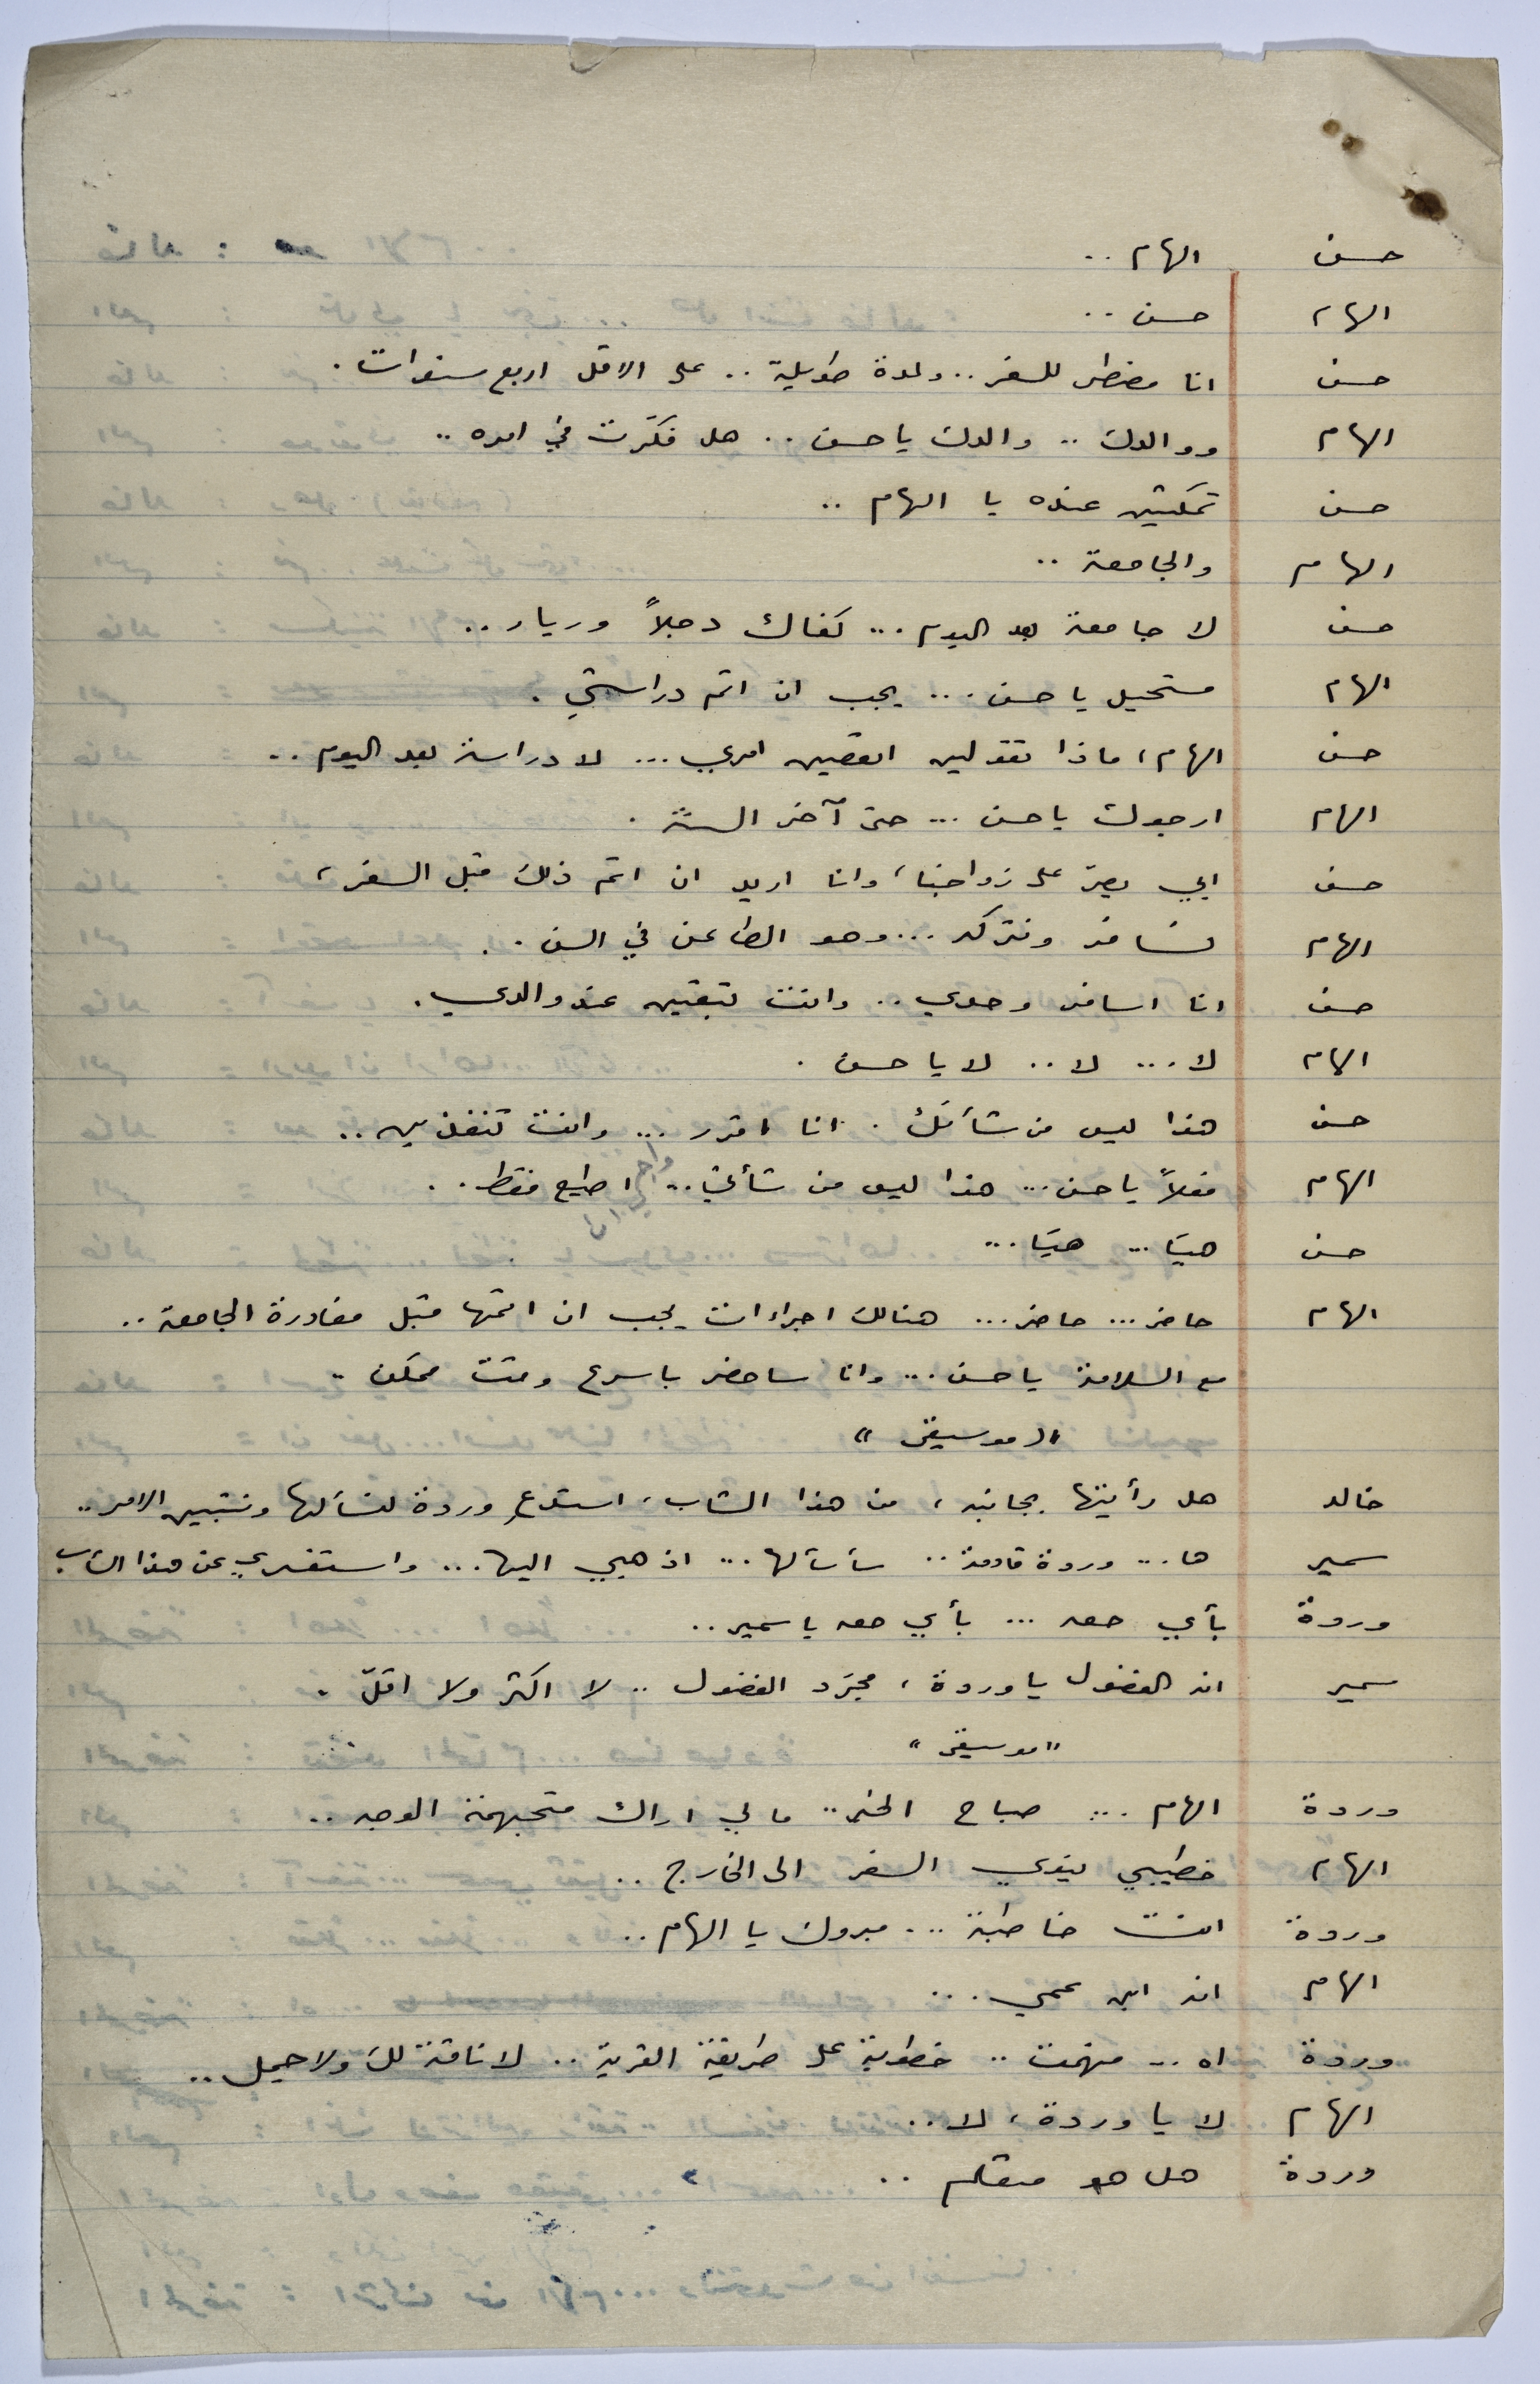 حسن الهام ..
الهام حسن ..
حسن انا مضطر للسفر .. ولمدة طويلة .. على الاقل اربع سنوات .
الهام ووالدك .. والدك يا حسن .. هل فكّرت في امره ..
حسن تمكثين عنده يا الهام ..
الهام والجامعة ..
حسن لا جامعة بعد اليوم ... كفاك دجلاً ورياء ..
الهام مستحيل يا حسن ... يجب ان اتم دراستي .
حسن الهام ، ماذا تقولين اتعصين امري ... لا دراسة بعد اليوم ..
الهام ارجوك يا حسن ... حتى آخر السنة .
حسن ابي يصرّ على زواجنا ، وانا اريد ان اتم ذلك قبل السفر ،
الهام نسافر ونتركه ... وهو الطاعن في السن ..
حسن انا اسافر وحدي .. وانت تبقين عند والدي .
الهام لا ... لا .. لا يا حسن .
حسن هذا ليس من شأنك . انا اقرر ... وانت تنفذين ..
الهام فعلاً يا حسن ... هذا ليس من شأني .. واجبي ان اطيع فقط ..
حسن هيّا ... هيّا ...
الهام حاضر ... حاضر ... هنالك اجراءات يجب ان اتمها قبل مغادرة الجامعة ..
مع السلامة يا حسن ... وانا ساحضر باسرع وقت ممكن .
" موسيقى "
خالد هل رأيتها بجانبه ، من هذا الشاب ، استدع وردة لنسألها ونتبين الامر ..
سمير ها ... وردة قادمة .. سأسألها ... اذهبي اليها ... واستفسري عن هذا الشاب
وردة بأي حق ... بأي حق يا سمير ..
سمير انه الفضول يا وردة ، مجرّد الفضول .. لا اكثر ولا اقلّ .
" موسيقى "
وردة الهام ... صباح الخير .. ما لي اراك متجهمة الوجه ..
الهام خطيبي ينوي السفر الى الخارج ..
وردة انت خاطبة ... مبروك يا الهام ..
الهام انه ابن عمي ...
وردة اه .. فهمت .. خطوبة على طريقة القرية .. لا ناقة لك ولا جمل ..
الهام لا يا وردة ، لا ..
وردة هل هو متعلم ..